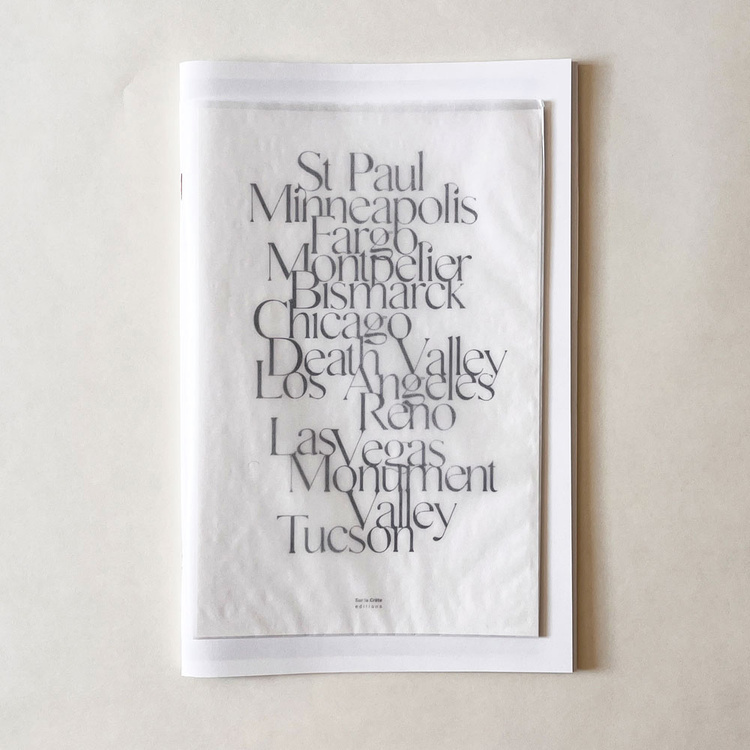 St Paul
Minneapolis
Fargo
Montpelier
Bismarck
Chicago
Death Valley
Los Angeles
Reno
Las Vegas
Monument
Valley
Tucson
éditions